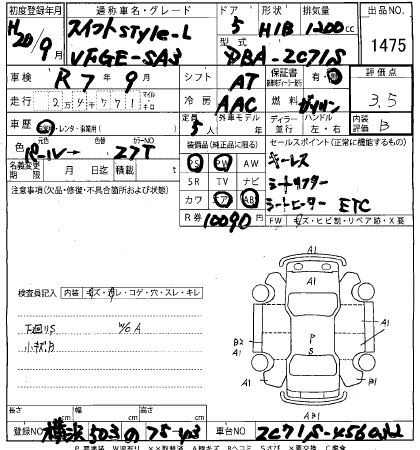 初度登録年月 通称車名・グレード ドア 形状 排気量 出品NO.
H20/9月 スイフト style-L 5 H/B 1200cc 1475
VFGE-SA3 型式 DBA-ZC71S
車検 R7年9月 シフト AT 保証書 有・無 評価点
走行 24771 マイル キロ 冷房 AAC 燃料 ガソリン 3.5
車歴 自家用・レンタ・事業用( ) 定員 5人 外車モデル 年 ディーラー 並行 ハンドル 左・右 内装 B
色 元色 パール→ 色替 カラーNO Z7T 装備品(純正品に限る) セールスポイント(正常に機能するもの)
名義変更期限 月 日迄 積載 t PS PW AW キーレス
SR TV ナビ シートリフター
注意事項(欠品・修復・不具合箇所および状態) カワ エア AB シートヒーター ETC
R券 10090円 FW キズ・ヒビ割・リペア跡・X要
A1
検査員記入 内装 キズ・汚レ・コゲ・穴・スレ・キレ
下廻りS W/6A
小キズB
A1
B2
A1
P
S
A1
B1
長さ cm 幅 cm 高さ cm
登録NO 横浜 503 の 75-43 車台NO